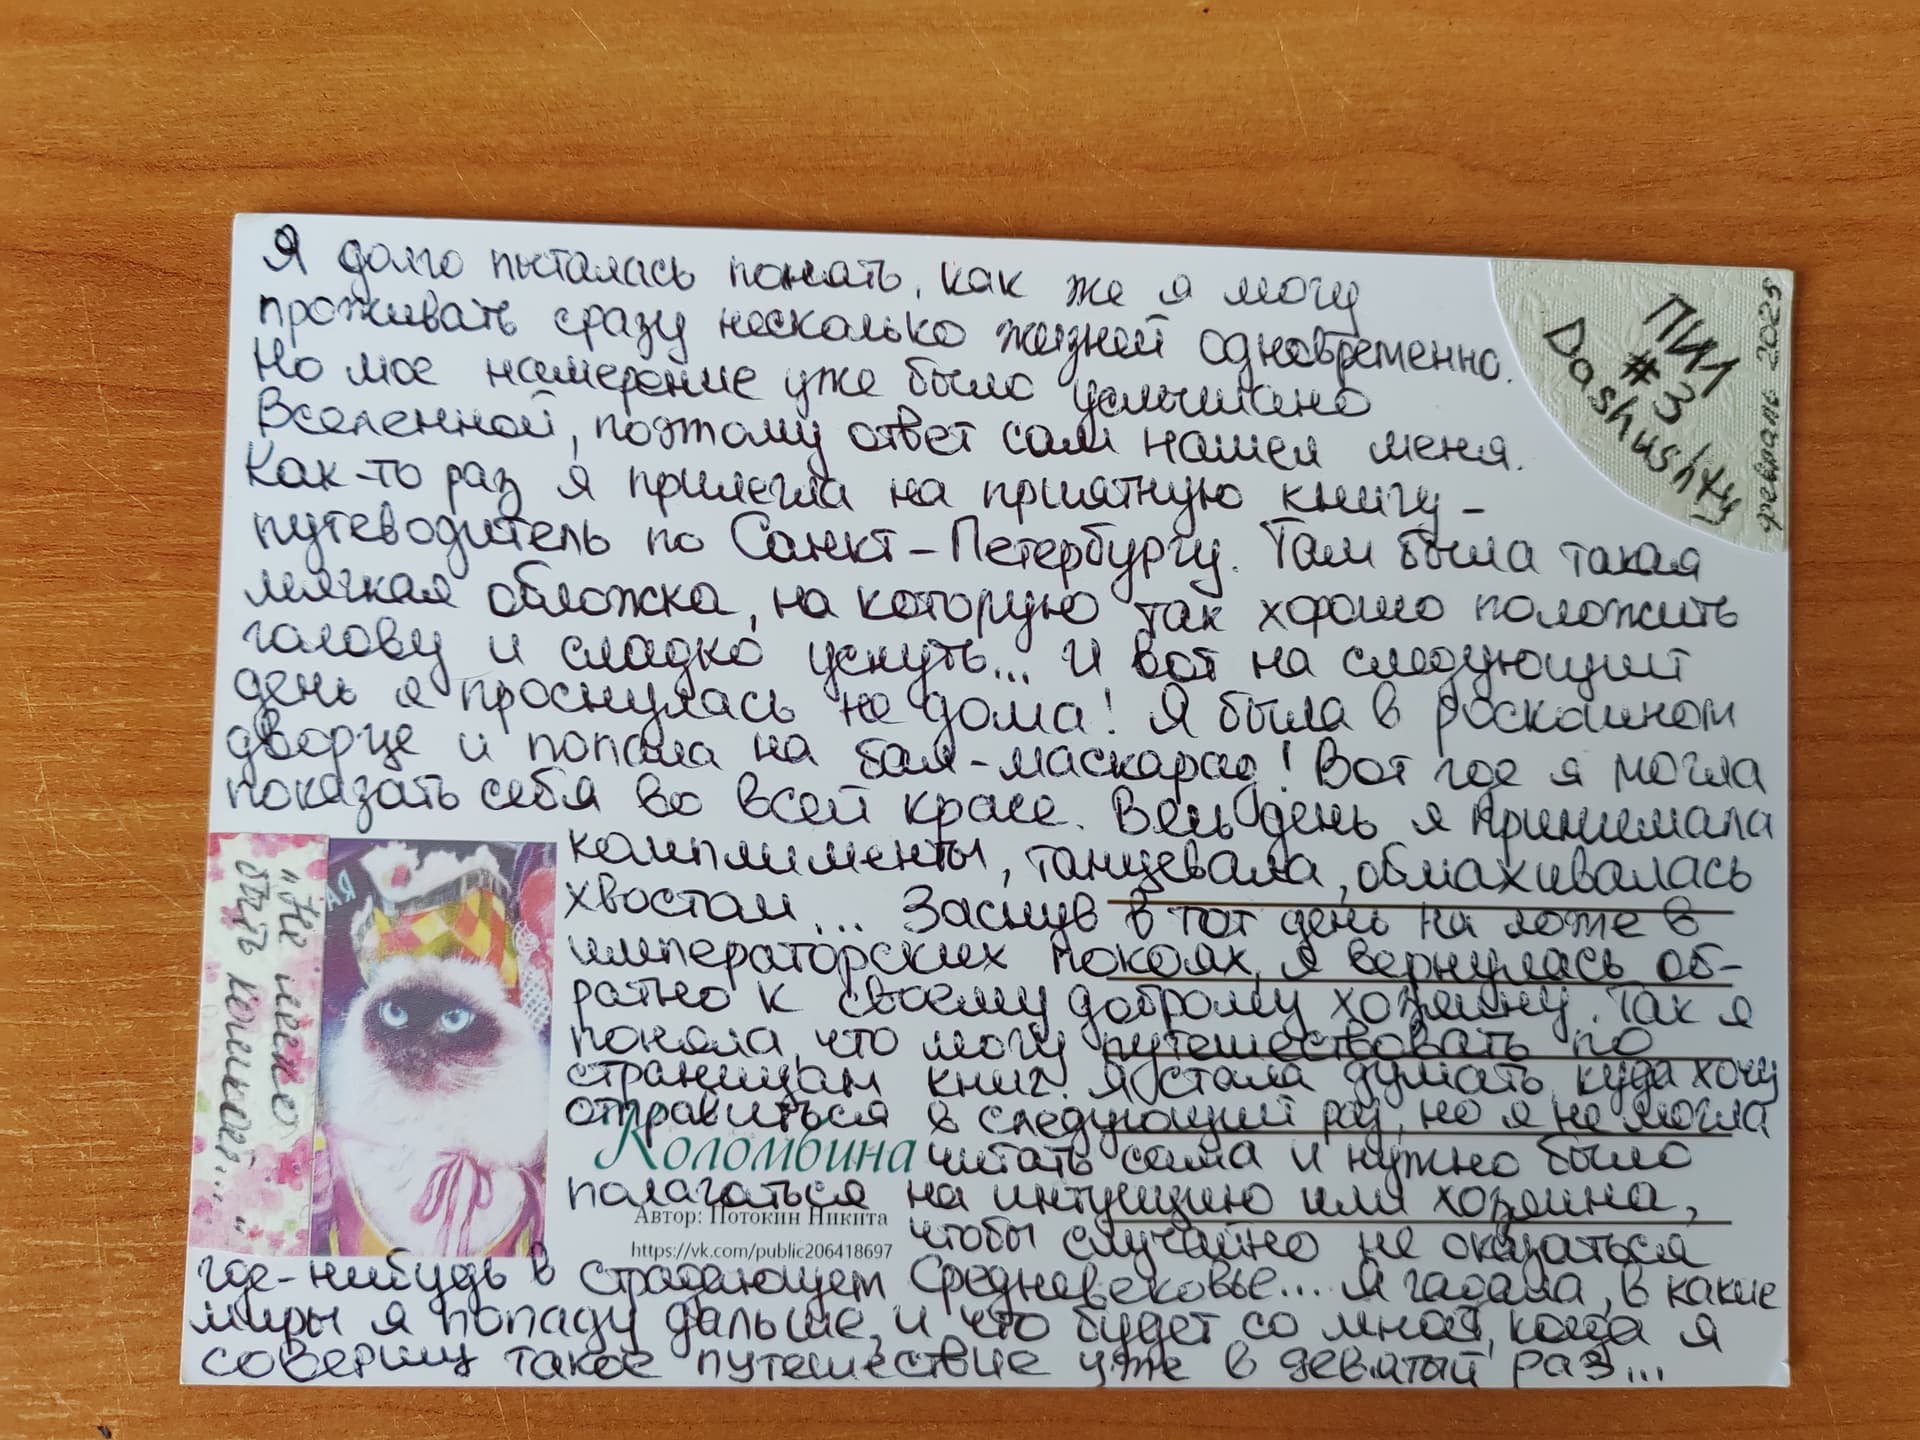 Я долго пыталась понять, как же я могу
проживать сразу несколько жизней одновременно.
Но мое намерение уже было услышано
Вселенной, поэтому ответ сам нашел меня.
Как-то раз я прилегла на приятную книгу-
путеводитель по Санкт-Петербургу. Там была такая
мягкая обложка, на которую так хорошо положить
голову и сладко уснуть... И вот на следующий
день я проснулась не дома! Я была в роскошном
дворце и попала на бал-маскарад! Вот где я могла
показать себя во всей красе. Весь день я принимала
комплименты, танцевала, обмахивалась
хвостом... Заснув в тот день на ложе в
императорских покоях, я вернулась об-
ратно к своему доброму хозяину. Так я
поняла, что могу путешествовать по
страницам книг. Я стала думать, куда хочу
отправиться в следующий раз, но я не могла
читать сама и нужно было
полагаться на интуицию или хозяина,
чтобы случайно не оказаться
где-нибудь в страдающем Средневековье... Я гадала, в какие
миры я попаду дальше, и что будет со мной, когда я
совершу такое путешествие уже в девятый раз...
ПИЛ
#3
Dashushty
февраль 2025
"Не легко
быть кошкой..."
Коломбина
Автор: Потокин Никита
https://vk.com/public206418697